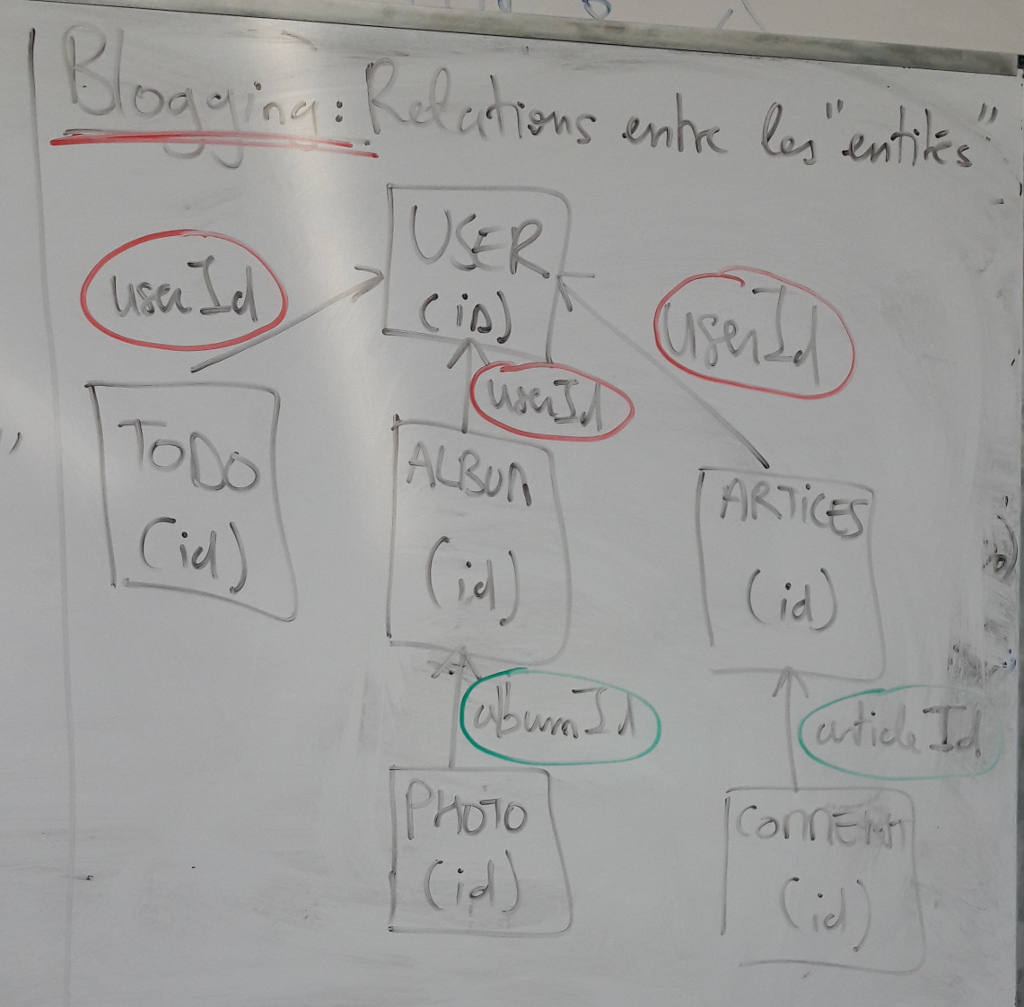 Blogging: Relations entre les "entités"
USER
(iD)
userId
userId
userId
TODO
(id)
ALBUM
(id)
ARTICES
(id)
albumId
articleId
PHOTO
(id)
(id)